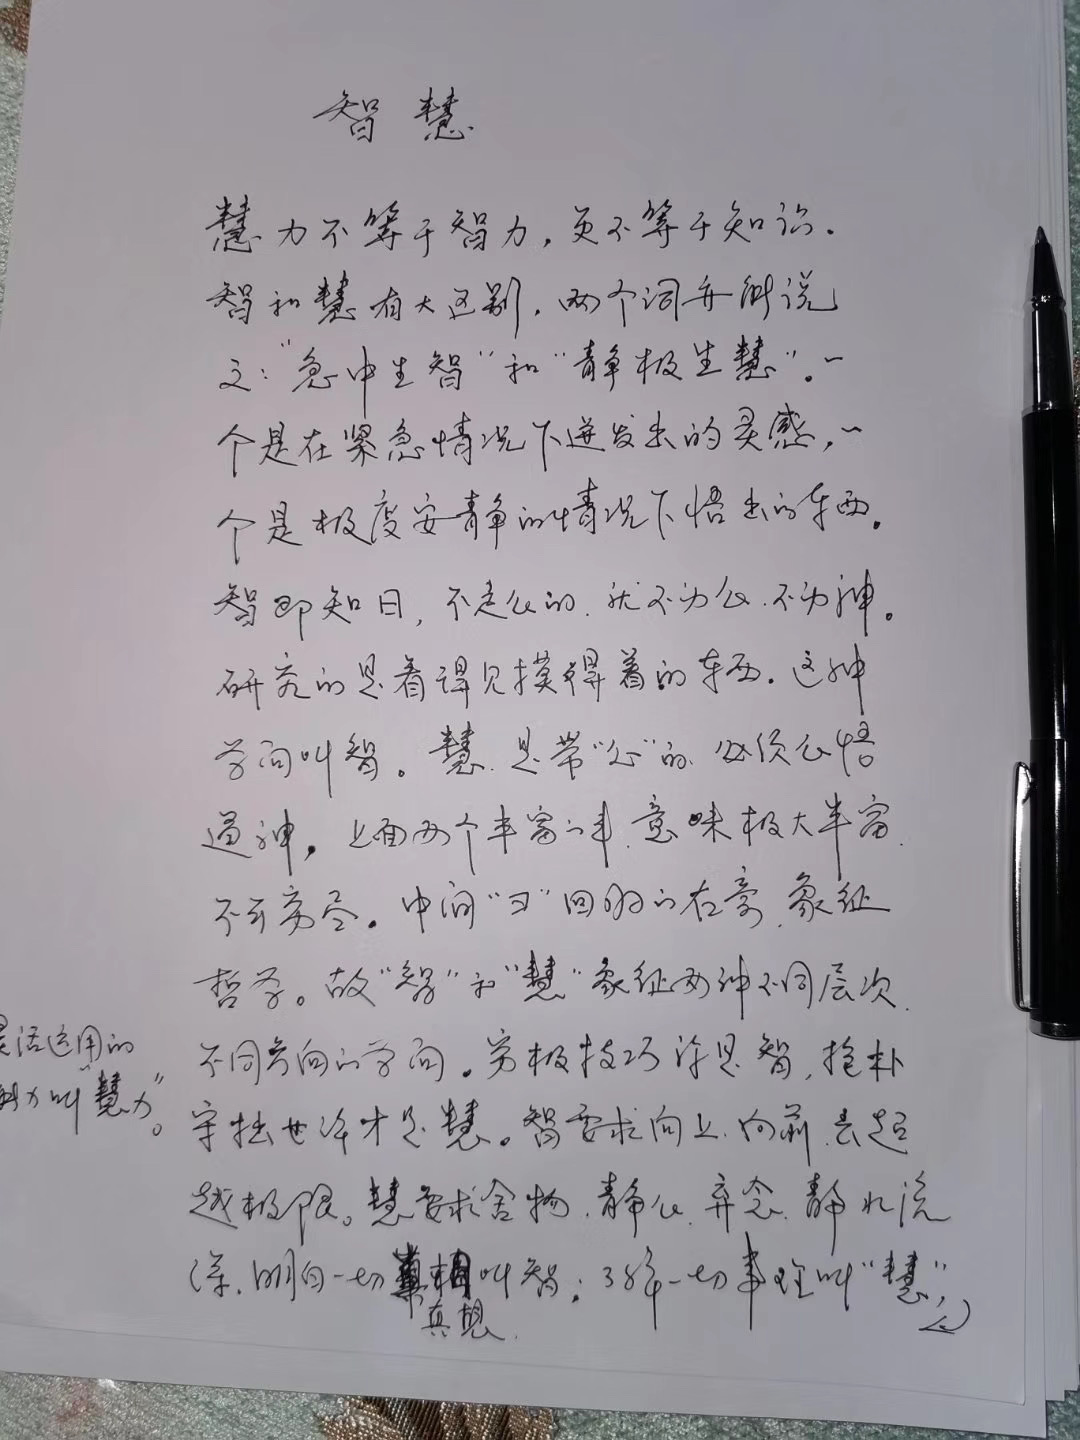 智慧
慧力不等于智力，更不等于知识.
智和慧有大区别，两个词来解说
之："急中生智"和"静极生慧"。一
个是在紧急情况下迸发出的灵感，一
个是极度安静的情况下悟出的东西。
智即知日，不走心的.就不为心.不为神。
研究的是看得见摸得着的东西.这种
学问叫智。慧.是带"心"的.必须心悟
通神。上面两个丰富的丰.意味极大丰富.
不可穷尽。中间"彐"回归的在意.象征
哲学。故"智"和"慧"象征两种不同层次.
不同方向的学问.穷极技巧许是智，抱朴
守拙也许才是慧。智要求向上.向前.去超
越极限。慧要求舍物.静心.弃念.静水流
深.明白一切真相叫智；了解一切事理叫"慧"，
真想.
灵活运用的
能力叫"慧力"。